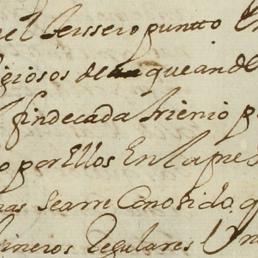 el terssero puntto
giosos de que an de
findecada trienio p
o por Ellos En la pre
mas searre Conosido q
ineros Regulares Un